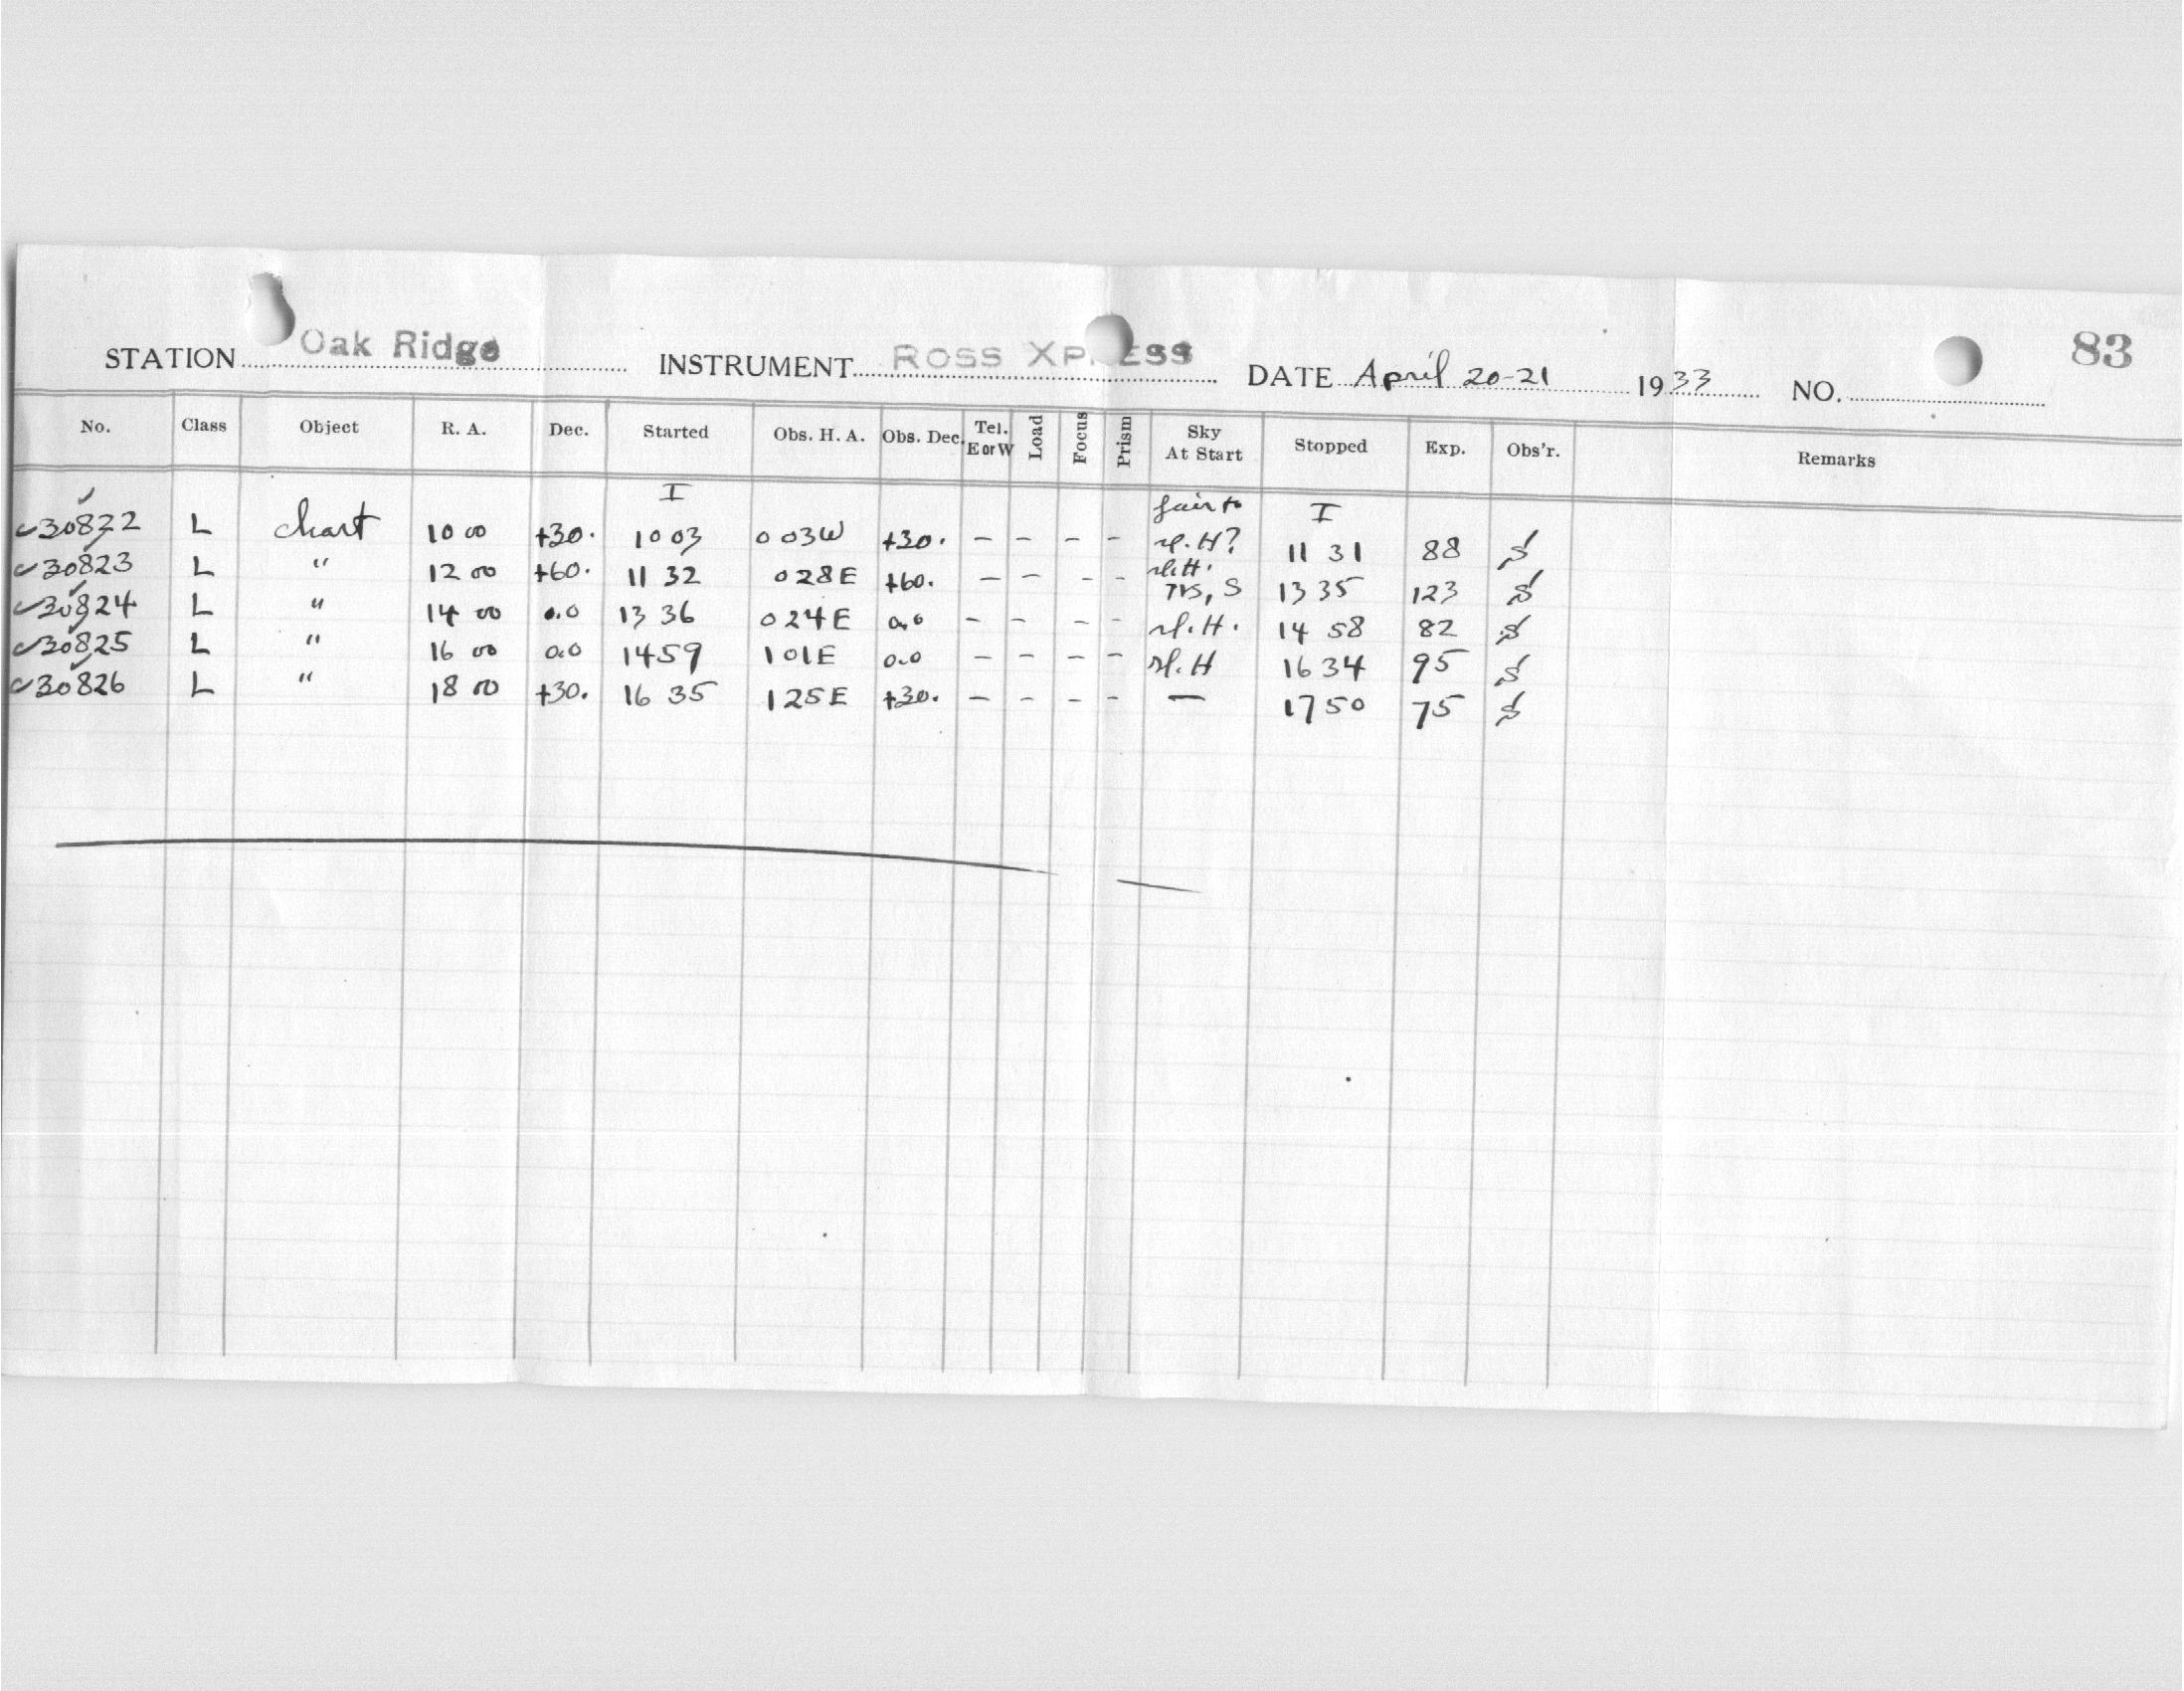 83
STATION Oak Ridge INSTRUMENT ROSS XPRESS DATE April 20-21 1933 NO.
No. Class Object R. A. Dec. Started Obs. H. A. Obs. Dec. Tel. E or W Load Focus Prism Sky At Start Stopped Exp. Obs'r. Remarks
I fair to I
30822 L chart 10 00 +30. 10 03 0 03W +30. – – – – sl. H? 11 31 88
30823 L " 12 00 +60. 11 32 0 28E +60. – – – – sl. H. 13 35 123
30824 L " 14 00 0.0 13 36 0 24E 0.0 – – – – sl. H. 14 58 82
30825 L " 16 00 0.0 14 59 1 01E 0.0 – – – – sl. H 16 34 95
30826 L " 18 00 +30. 16 35 1 25E +30. – – – – — 17 50 75